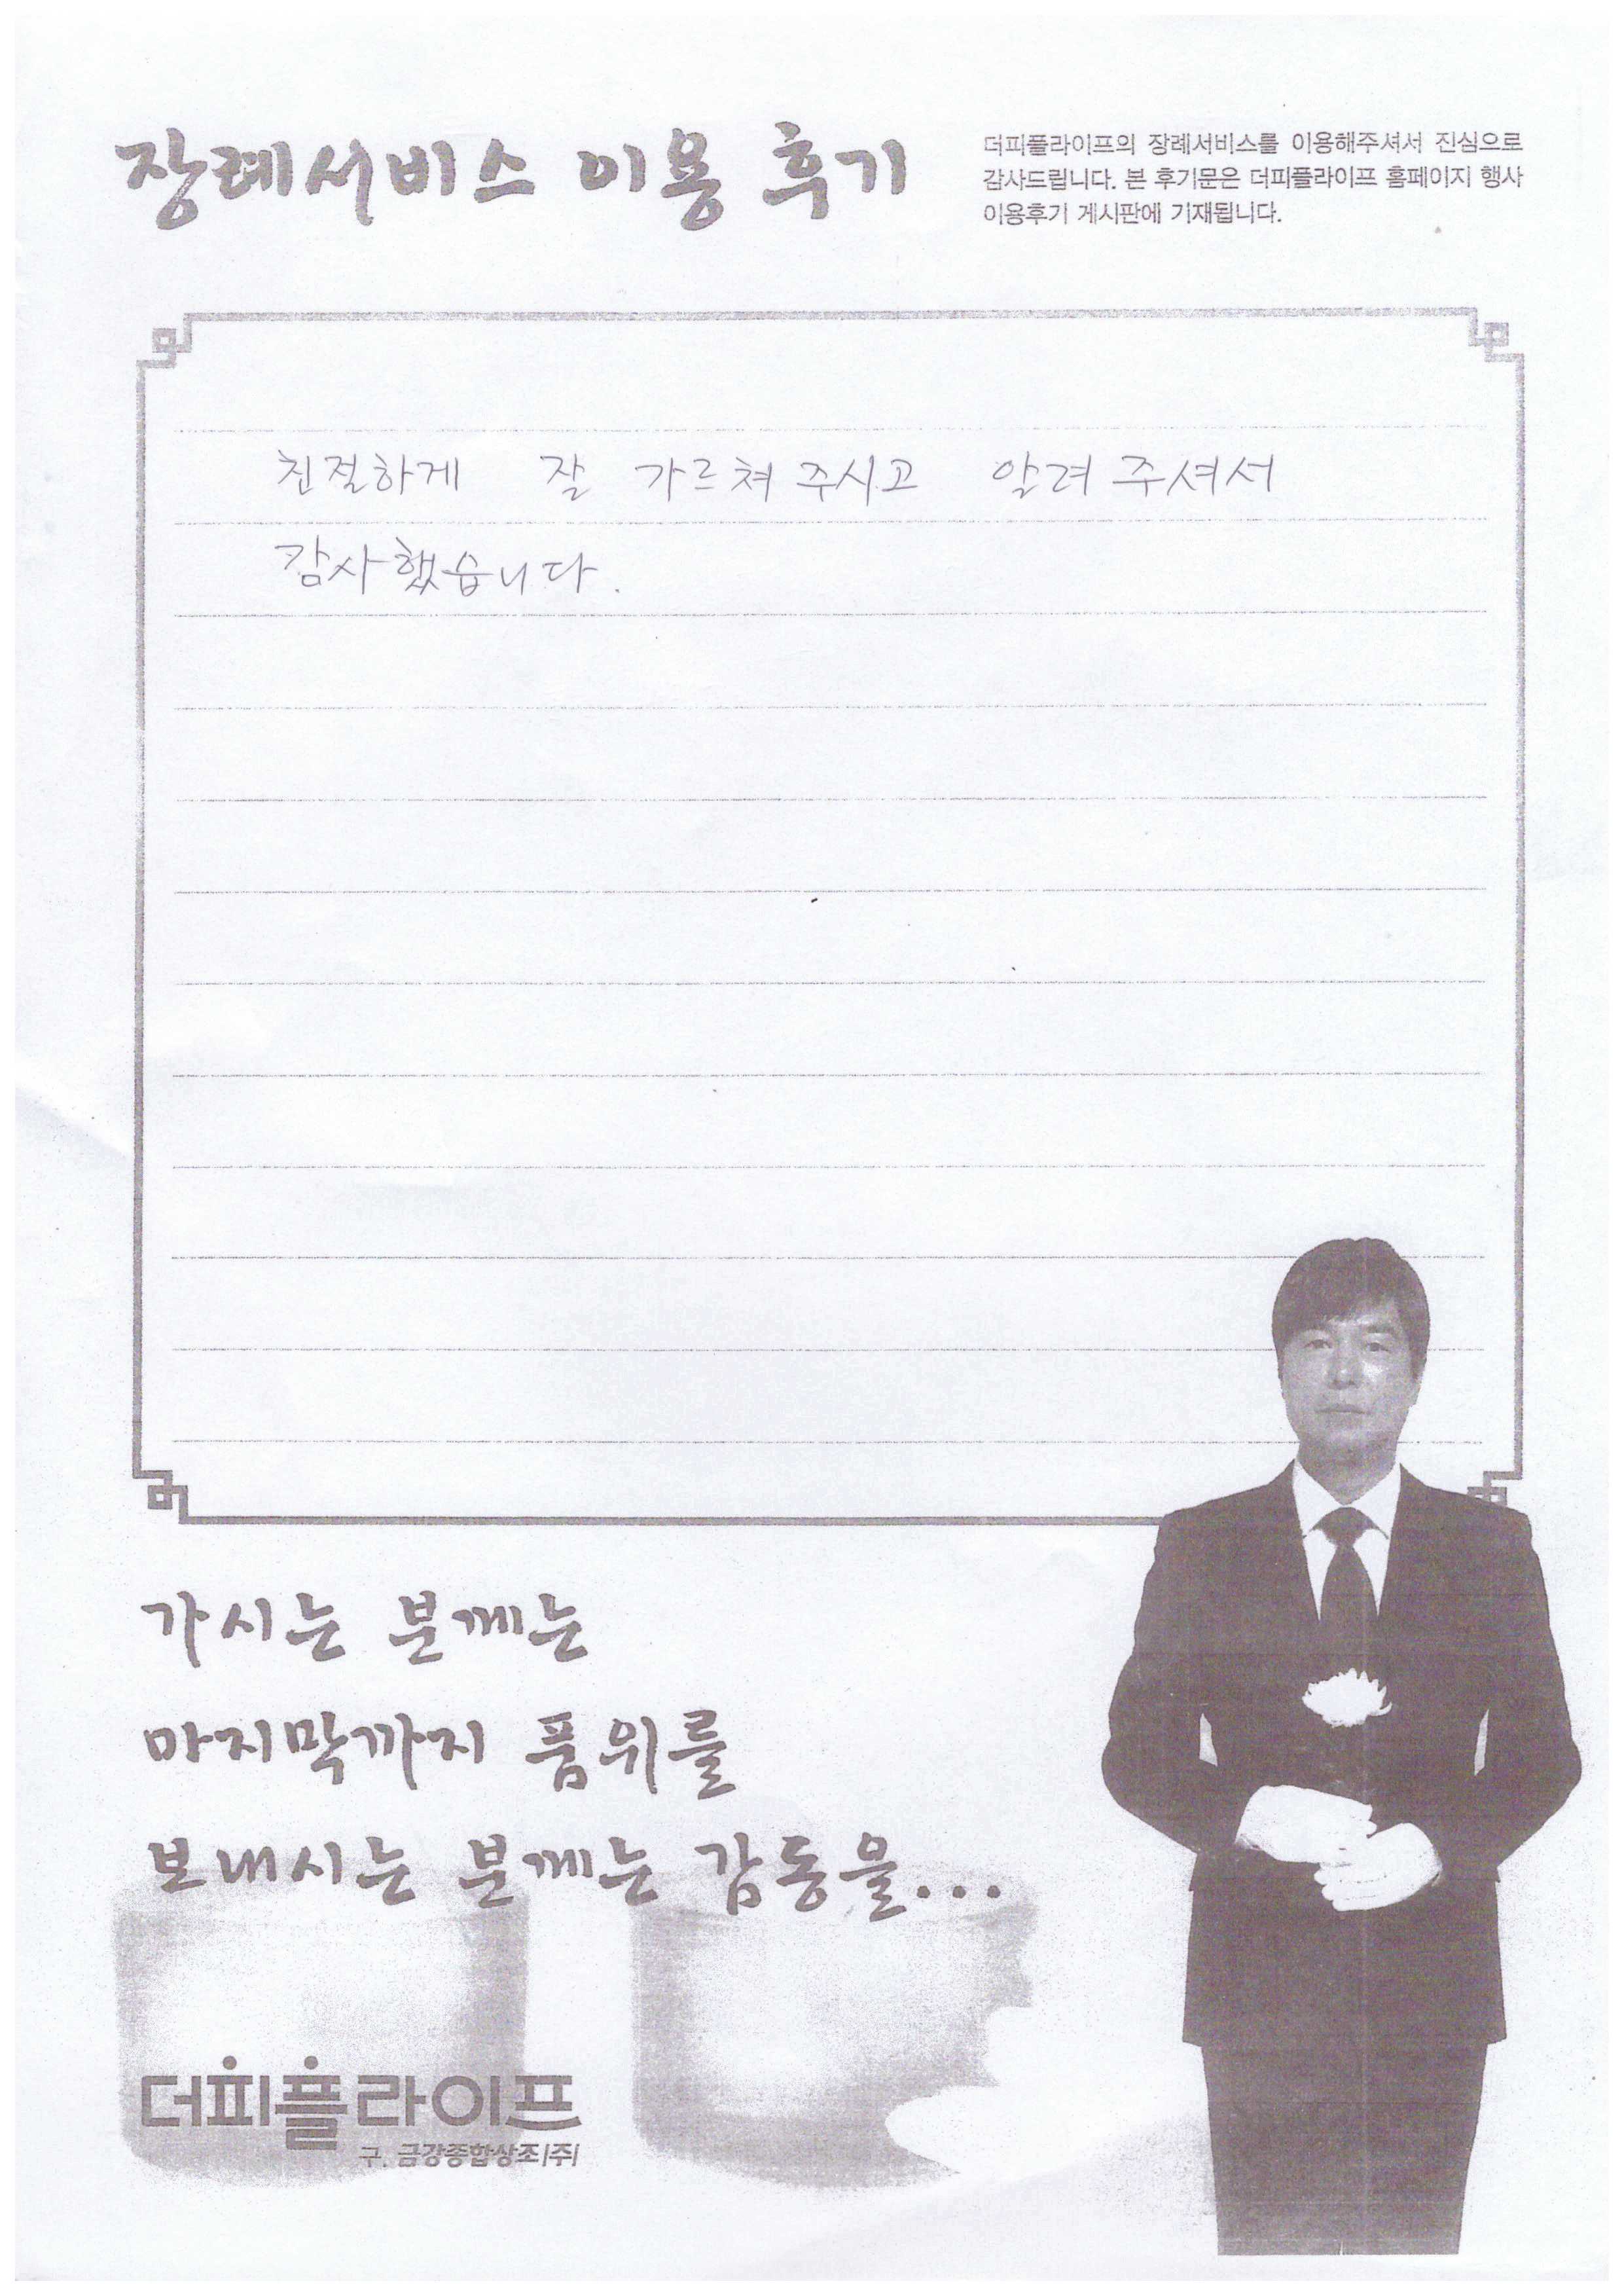 장례서비스 이용 후기
더피플라이프의 장례서비스를 이용해주셔서 진심으로
감사드립니다. 본 후기문은 더피플라이프 홈페이지 행사
이용후기 게시판에 기재됩니다.
친절하게 잘 가르쳐 주시고 알려 주셔서
감사했습니다.
가시는 분께는
마지막까지 품위를
보내시는 분께는 감동을...
더피플라이프
구. 금강종합상조(주)